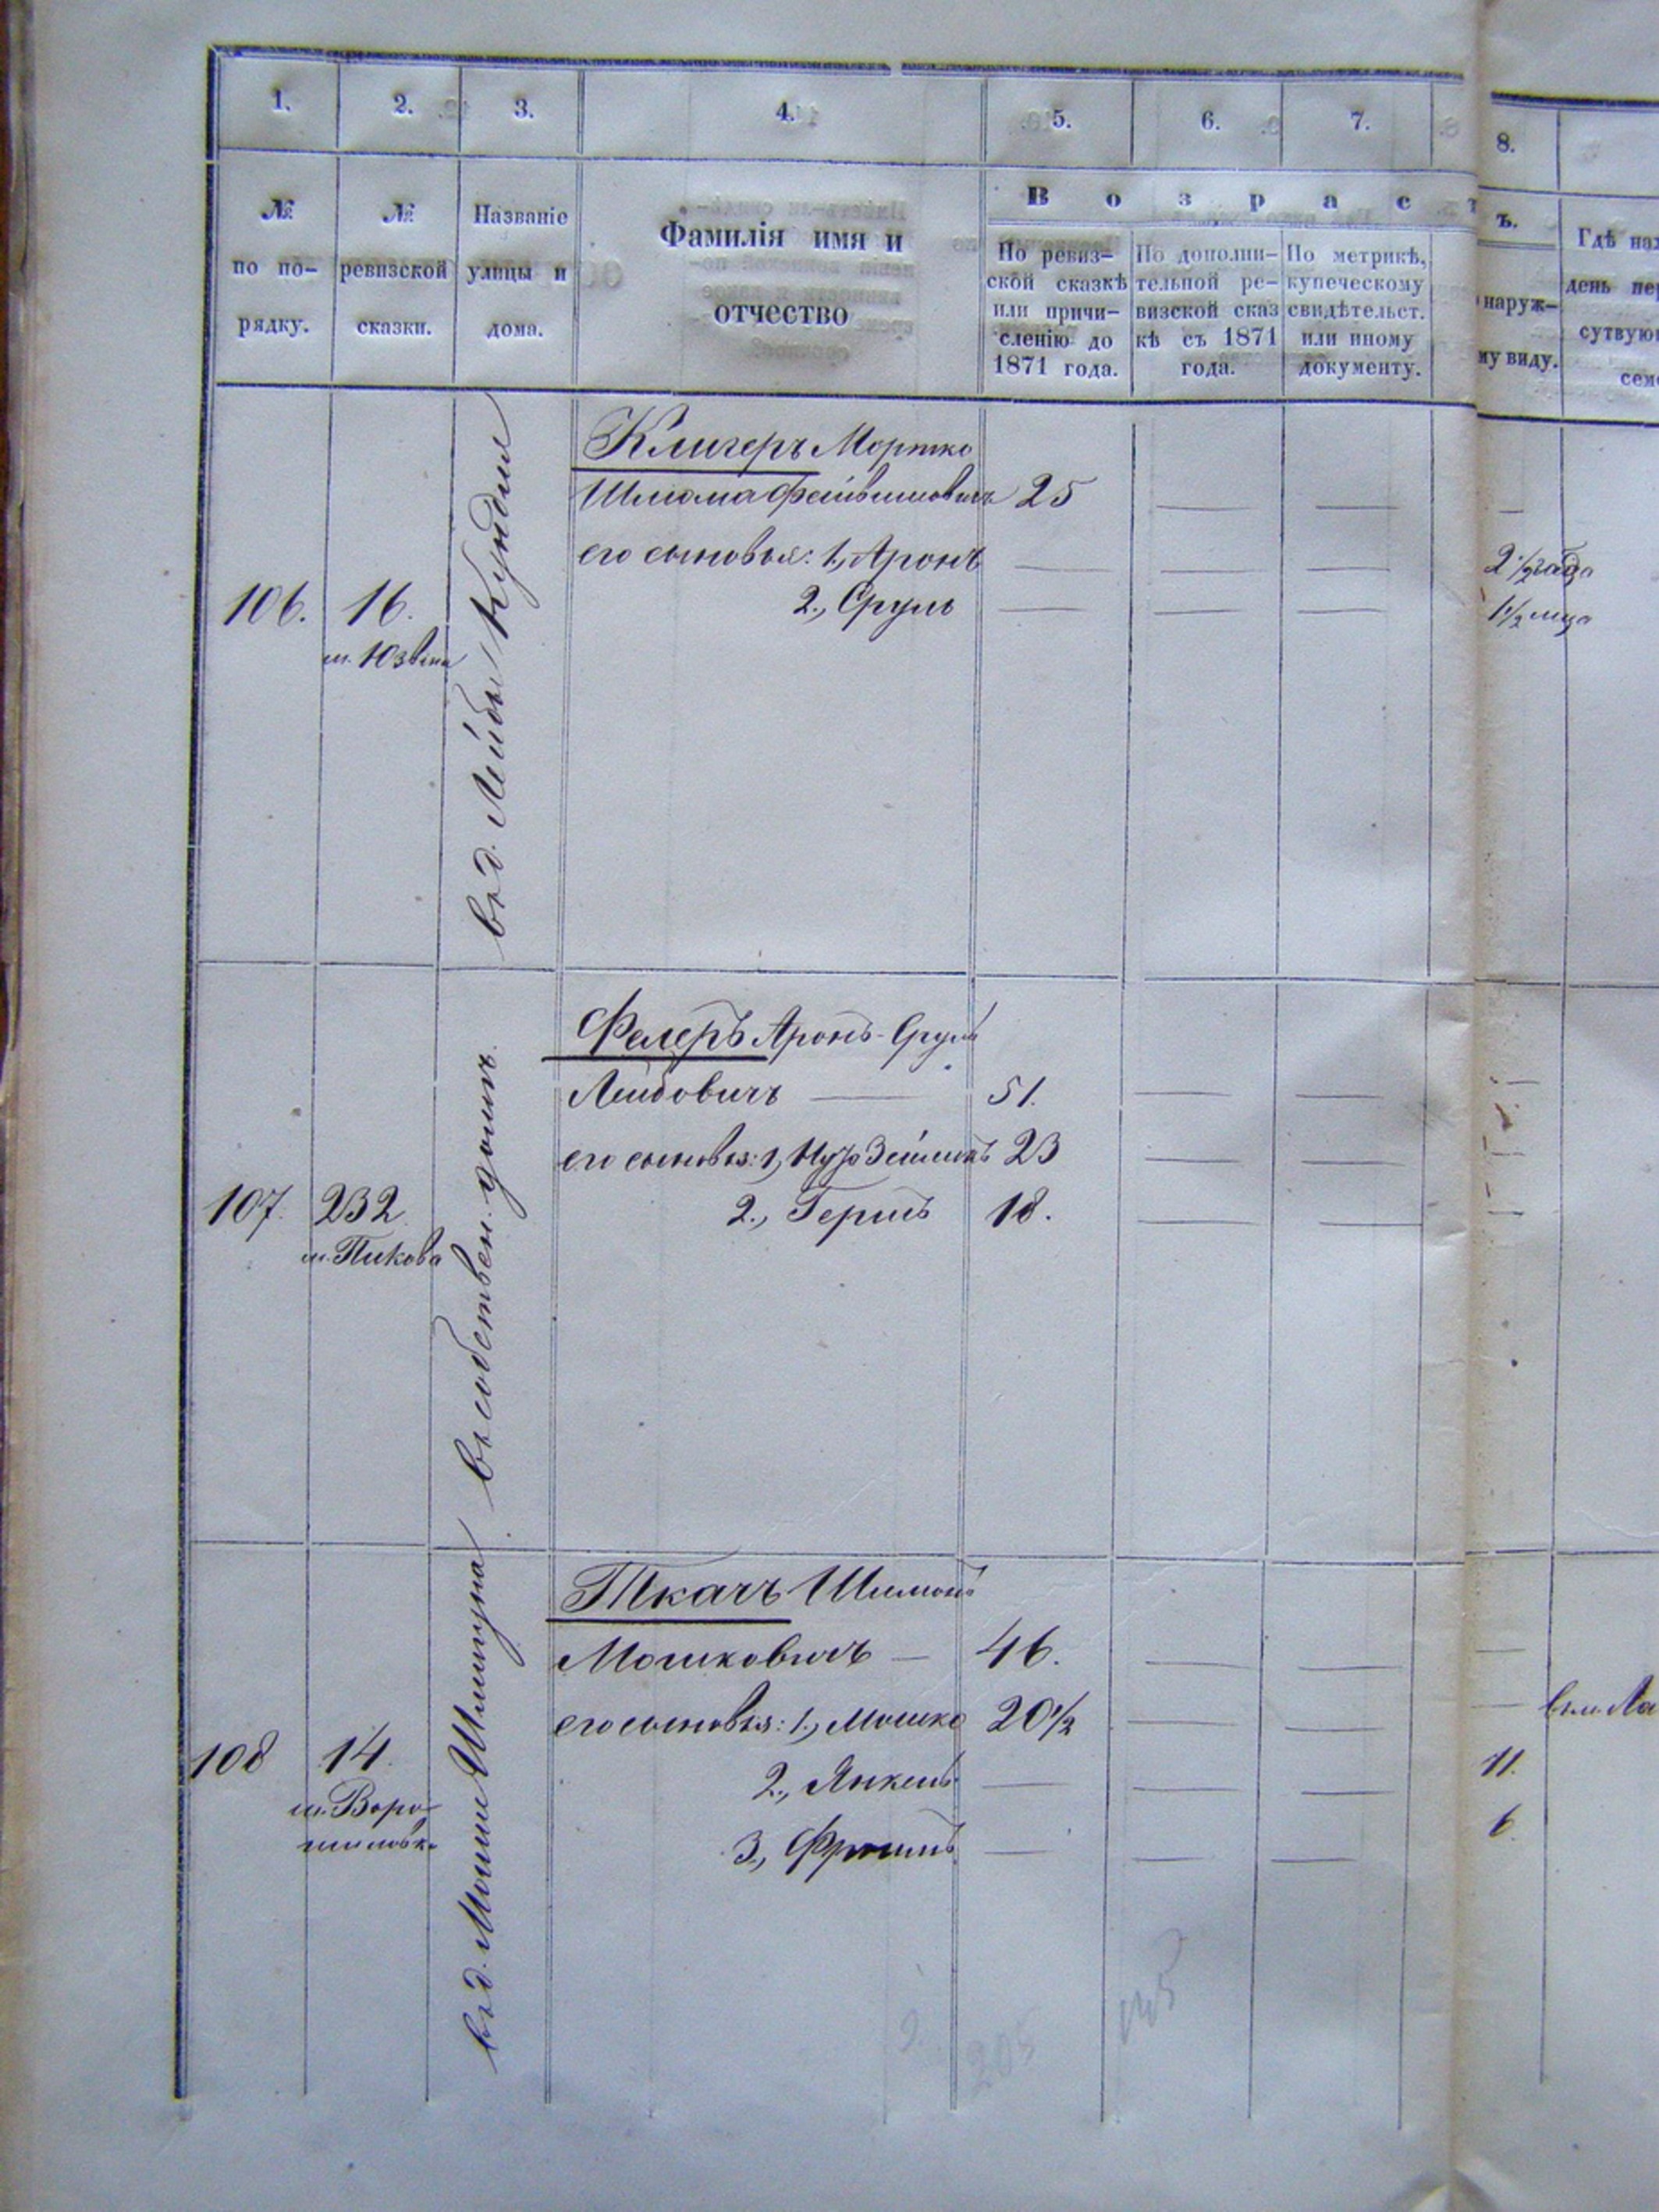 1. 2. 3. 4. 5. 6. 7. 8.
№ по по-
рядку.
№
ревизской
сказки.
Названіе
улицы и
дома.
Фамилія имя и
отчество
В о з р а с т ъ.
По ревиз-
ской сказкѣ
или причи-
сленію до
1871 года.
По дополни-
тельной ре-
визской сказ
кѣ съ 1871
года.
По метрикѣ,
купеческому
свидѣтельст.
или иному
документу.
наруж-
му виду.
Гдѣ нах
день пер
сутвую
сем
106.
16.
м. Юзвина
въ д. Лейбы Кундиш
Клигеръ Мортко
Шлиома Фейвишовичъ 25
его сыновья: 1., Аронъ
2½ года
2., Сруль
1½ мца
107.
232
м. Пикова
въ собствен. домѣ.
Фелеръ Аронъ-Сруль
Лейбовичъ 51.
его сыновья: 1, Нухо Зейликъ 23
2., Гершъ 18.
108
14.
м. Воро-
шиловк.
въ д. Мошки
Ткачъ Шимонъ
Мошковичъ 46.
его сыновья: 1., Мошко 20½
2., Янкель
11.
3., Фроимъ
6.
205